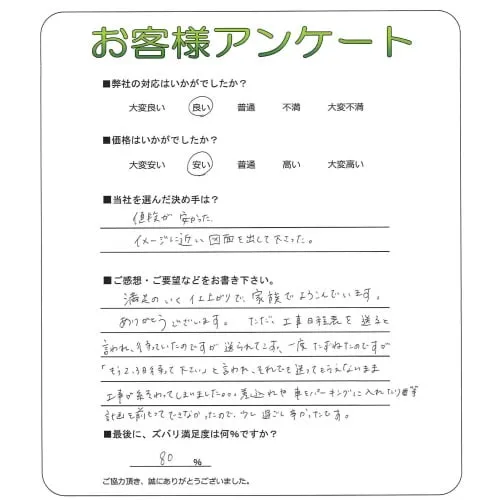 お客様アンケート
■弊社の対応はいかがでしたか？
大変良い 良い 普通 不満 大変不満
■価格はいかがでしたか？
大変安い 安い 普通 高い 大変高い
■当社を選んだ決め手は？
値段が安かった
イメージに近い図面を出して下さった。
■ご感想・ご要望などをお書き下さい。
満足のいく仕上がりで、家族でよろこんでいます。
ありがとうございます。ただ、工事日程表を送ると
言われ、待っていたのですが送られてこず、一度たずねたのですが
「もう2、3日待って下さい」と言われ、それでも送ってもらえないまま
工事が終わってしまいました。。。差込れや車をパーキングに入れたり
計画を前もってできなかったので、少し過ごし辛かったです。
■最後に、ズバリ満足度は何％ですか？
80 ％
ご協力頂き、誠にありがとうございました。